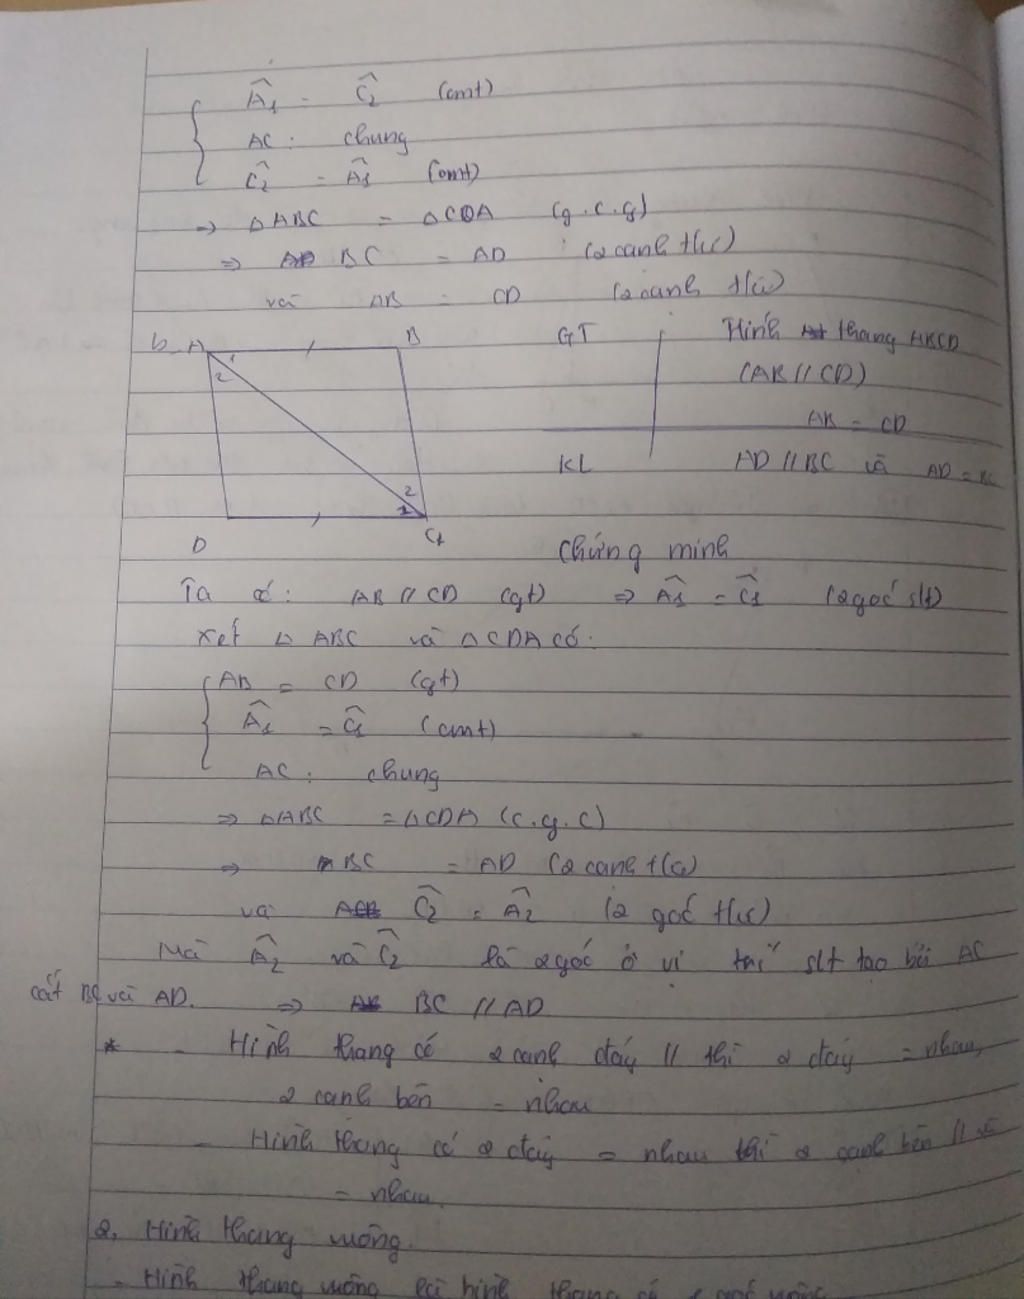 Â1 = Ĉ2 (cmt)
AC : chung
Ĉ2 = Â1 (cmt)
=> ΔABC = ΔCDA (g.c.g)
=> BC = AD (2 canh t/ư)
và AB = CD (2 canh t/ư)
b, A 1 B GT Hình thang ABCD
2 (AB // CD)
AB = CD
KL AD // BC và AD = BC
2
1
D C
Chứng minh
Ta có: AB // CD (gt) => Â1 = Ĉ1 (2 goc slt)
Xét Δ ABC và Δ CDA có:
AB = CD (gt)
Â1 = Ĉ1 (cmt)
AC : chung
=> ΔABC = ΔCDA (c.g.c)
=> BC = AD (2 canh t/ư)
và Ĉ2 = Â2 (2 goc t/ư)
Mà Â2 và Ĉ2 là 2 góc ở vị trí slt tạo bởi AC
cắt BC và AD. => BC // AD
* - Hình thang có 2 canh đáy // thì 2 đáy = nhau,
2 canh bên = nhau
- Hình thang có 2 đáy = nhau thì 2 canh bên // và
= nhau.
2, Hình thang vuông.
- Hình thang vuông là hình thang có 1 góc vuông